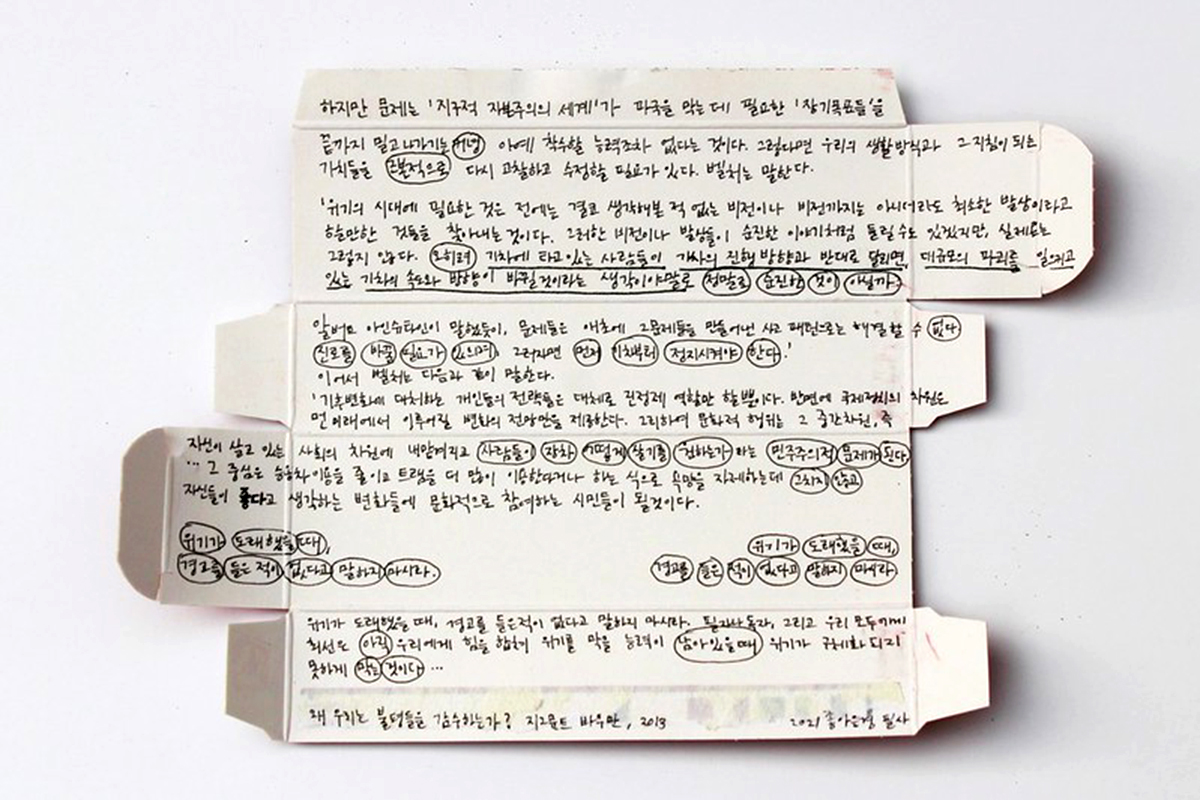 하지만 문제는 '지구적 자본주의의 세계'가 파국을 막는데 필요한 '장기목표들'을
끝까지 밀고나가기는커녕 아예 착수할 능력조차 없다는 것이다. 그렇다면 우리의 생활방식과 그 지침이 되는
가치들을 근본적으로 다시 고찰하고 수정할 필요가 있다. 벨처는 말한다.
'위기의 시대에 필요한 것은 전에는 결코 생각해본 적 없는 비전이나 비전까지는 아니더라도 최소한 발상이라고
할만한 것들을 찾아내는 것이다. 그러한 비전이나 발상들이 순진한 이야기처럼 들릴 수도 있겠지만, 실제로는
그렇지 않다. 오히려 기차에 타고있는 사람들이 기차의 진행 방향과 반대로 달리면, 대규모의 파괴를 일으키고
있는 기차의 속도와 방향이 바뀔것이라는 생각이야말로 정말로 순진한 것이 아닐까.
알버트 아인슈타인이 말했듯이, 문제들은 애초에 그문제들을 만들어낸 사고 패턴으로는 해결할 수 없다
진로를 바꿀 필요가 있으며, 그러자면 먼저 기차부터 정지시켜야 한다.'
이어서 벨처는 다음과 같이 말한다.
'기후변화에 대처하는 개인들의 전략들은 대체로 진정제 역할만 할뿐이다. 반면에 국제정치의 차원은
먼 미래에서 이루어질 변화의 전망만을 제공한다. 그리하여 문화적 행위는 그 중간차원, 즉
자신이 살고 있는 사회의 차원에 내맡겨지고 사람들이 장차 어떻게 살기를 원하는가 라는 민주주의적 문제가 된다
… 그 중심은 승용차이용을 줄이고 트램을 더 많이 이용한다거나 하는 식으로 욕망을 자제하는데 그치지 않고
자신들이 좋다고 생각하는 변화들에 문화적으로 참여하는 시민들이 될것이다.
위기가 도래했을 때,
경고를 들은 적이 없다고 말하지 마시라.
위기가 도래했을 때,
경고를 들은 적이 없다고 말하지 마시라
위기가 도래했을 때, 경고를 들은적이 없다고 말하지 마시라. 필자와 독자, 그리고 우리 모두에게
최선은 아직 우리에게 힘을 합쳐 위기를 막을 능력이 남아있을때 위기가 구체화되지
못하게 막는 것이다 …
왜 우리는 불평등을 감수하는가? 지그문트 바우만, 2013
2021 좋아은경 필사